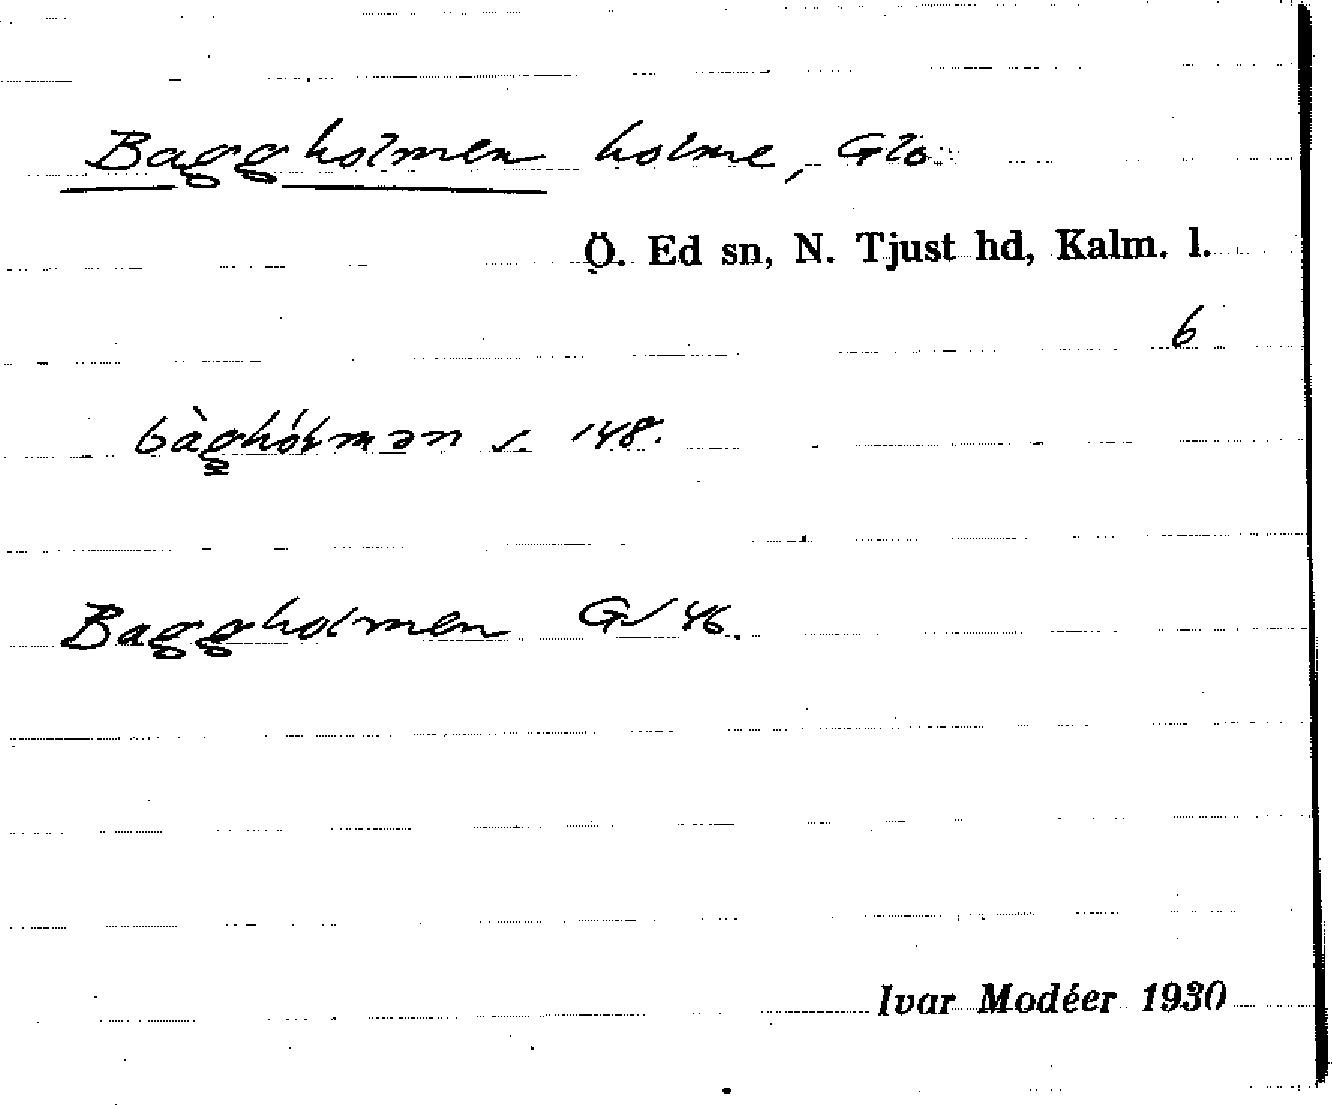 Baggholmen holme, Glo
Ö. Ed sn, N. Tjust hd, Kalm. l.
6
s. 148.
Baggholmen GV 46.
Ivar Modéer 1930